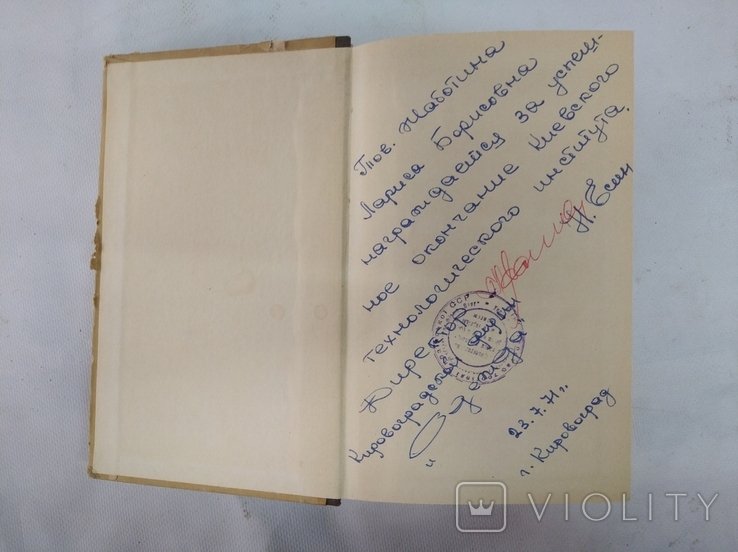 Тов. Жаботина
Лариса Борисовна
награждается за успеш-
ное окончание Киевского
технологического института.
Директор
Кировоградской
Н. Есин
и
23.7.71 г.
г. Кировоград
VIOLITY